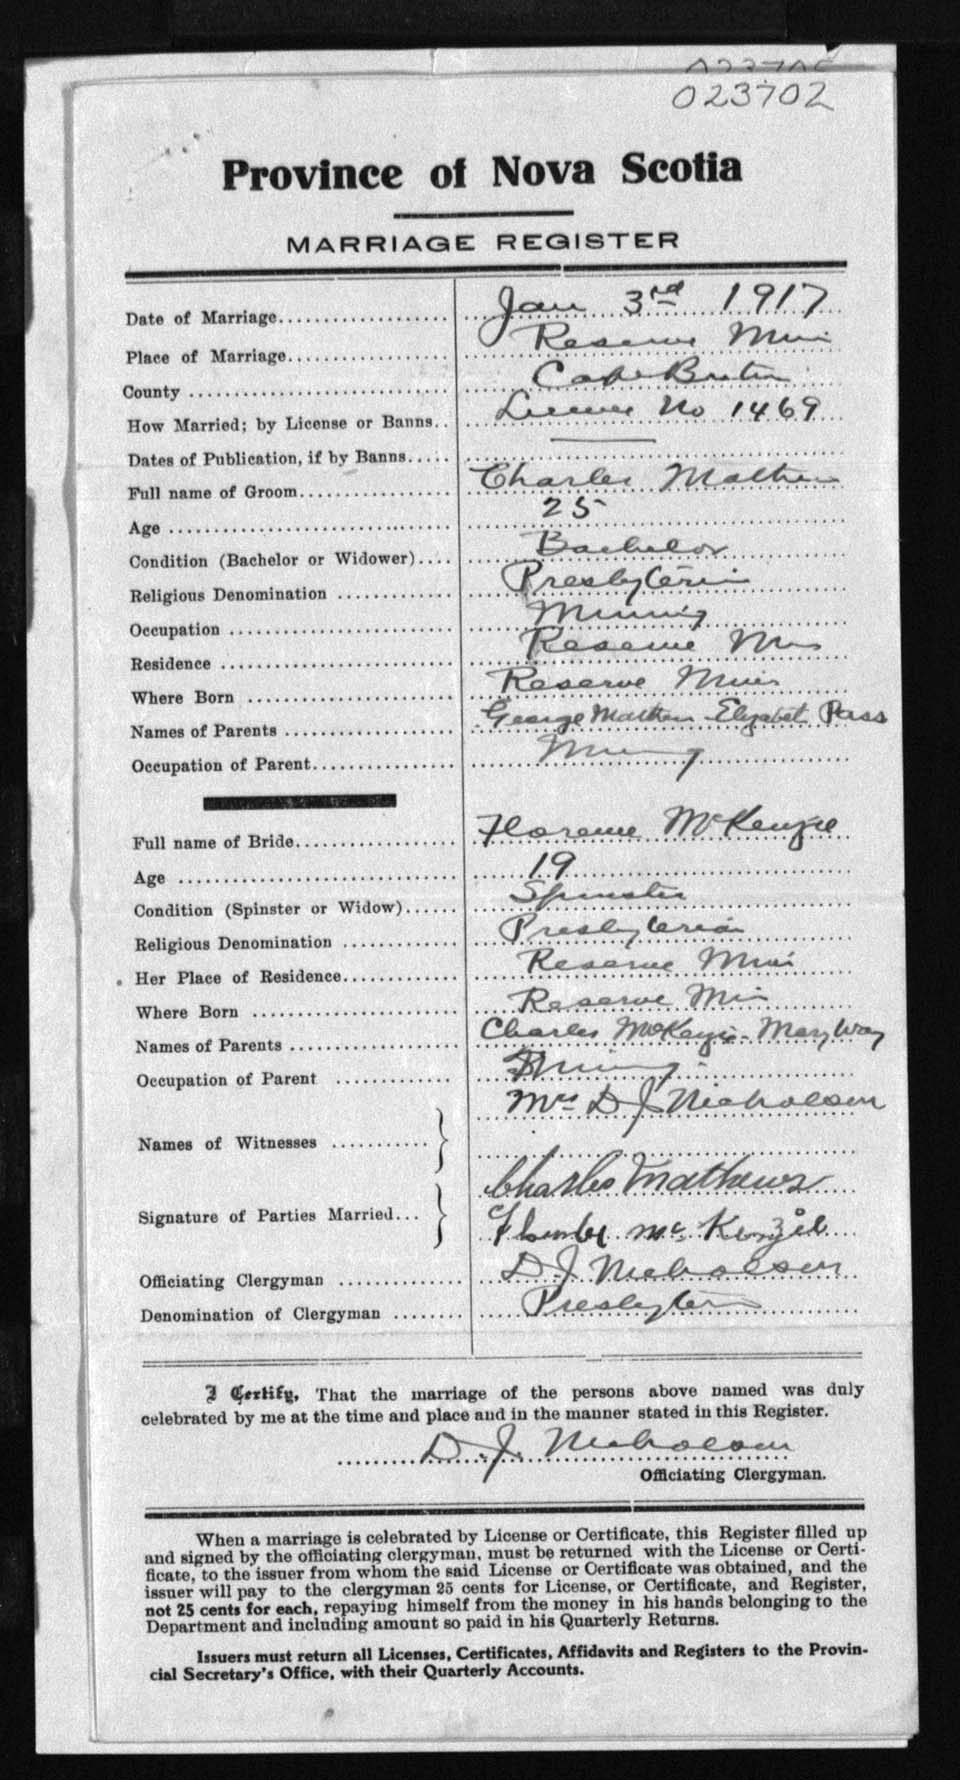 023702
Province of Nova Scotia
MARRIAGE REGISTER
Date of Marriage Jan 3rd 1917
Place of Marriage Reserve Mines
County Cape Breton
How Married; by License or Banns License No 1469
Dates of Publication, if by Banns
Full name of Groom Charles Mathews
Age 25
Condition (Bachelor or Widower) Bachelor
Religious Denomination Presbyterian
Occupation Mining
Residence Reserve Mines
Where Born Reserve Mines
Names of Parents George Mathews Elizabet Pass
Occupation of Parent Mining
Full name of Bride Florence McKenzie
Age 19
Condition (Spinster or Widow) Spinster
Religious Denomination Presbyterian
Her Place of Residence Reserve Mines
Where Born Reserve Mines
Names of Parents Charles McKenzie Mary Way
Occupation of Parent Mining
Names of Witnesses Mrs D J Nicholson
Signature of Parties Married Charles Mathews
Mc Kenzie
Officiating Clergyman D J Nicholson
Denomination of Clergyman Presbyterian
I Certify, That the marriage of the persons above named was duly
celebrated by me at the time and place and in the manner stated in this Register.
D. J. Nicholson
Officiating Clergyman.
When a marriage is celebrated by License or Certificate, this Register filled up
and signed by the officiating clergyman, must be returned with the License or Certi-
ficate, to the issuer from whom the said License or Certificate was obtained, and the
issuer will pay to the clergyman 25 cents for License, or Certificate, and Register,
not 25 cents for each, repaying himself from the money in his hands belonging to the
Department and including amount so paid in his Quarterly Returns.
Issuers must return all Licenses, Certificates, Affidavits and Registers to the Provin-
cial Secretary's Office, with their Quarterly Accounts.